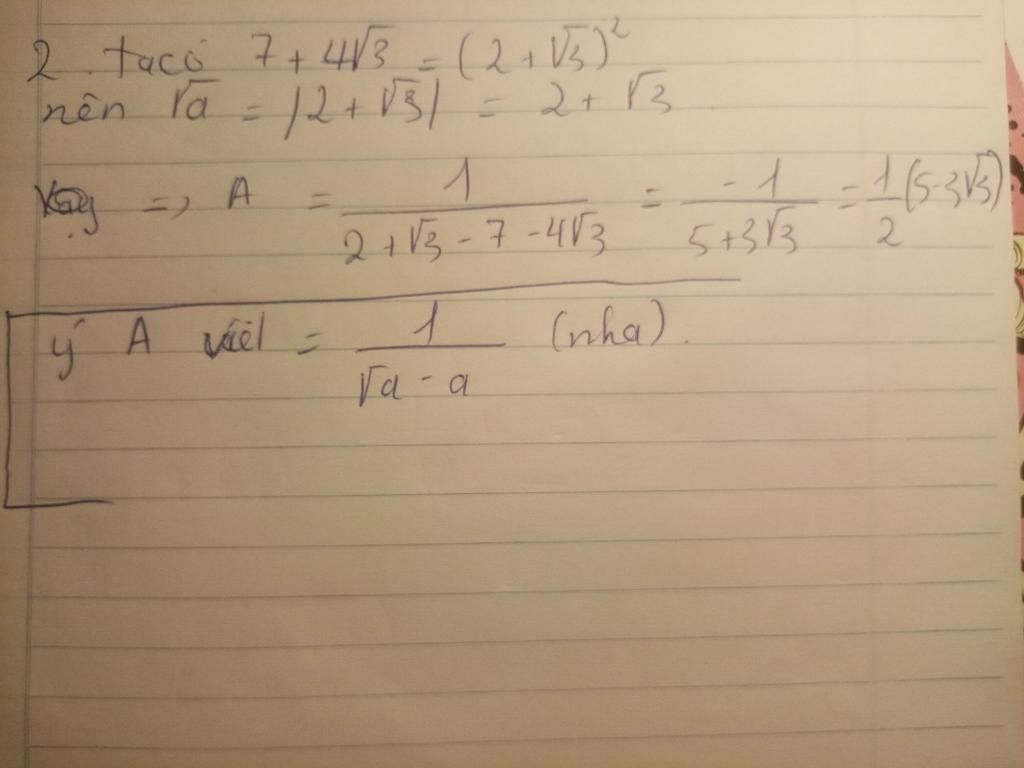 2. ta có 7 + 4√3 = (2 + √3)²
nên √a = |2 + √3| = 2 + √3.
=> A = 1/(2 + √3 - 7 - 4√3) = -1/(5 + 3√3) = 1/2 (5-3√3)
ý A viết = 1/(√a - a) (nha).